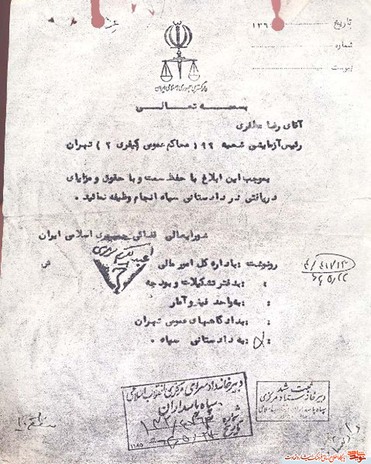 تاریخ ۱۳۶
شماره
پیوست
دادگستری جمهوری اسلامی ایران
بسمه تعالی
آقای رضا مظفری
رئیس آزمایشی شعبه ۹۹ (محاکم عمومی کیفری ۲) تهران
بموجب این ابلاغ با حفظ سمت و با حقوق و مزایای
دریافتی در دادستانی سپاه انجام وظیفه نمائید .
شورایعالی قضائی جمهوری اسلامی ایران
رونوشت : باداره کل امور مالی
: بدفتر تشکیلات و بودجه
: به واحد فیزو آمار
: بدادگاههای عمومی تهران
: به دادستانی سپاه .
دبیرخانه دادسرای مرکزی انقلاب اسلامی
سپاه پاسداران
شماره
تاریخ
ثبت شد